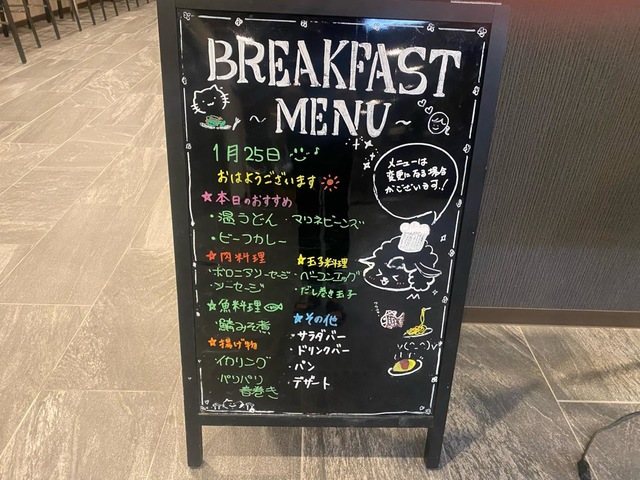 BREAKFAST
MENU
1月25日
おはようございます
メニューは
変更になる場合
がございます!
★本日のおすすめ
・温うどん ・マリネビーンズ
・ビーフカレー
★肉料理
・ボロニアソーセージ
・ソーセージ
★魚料理
・鯖みそ煮
★揚げ物
・イカリング
・パリパリ
春巻き
★玉子料理
・ベーコンエッグ
・だし巻き玉子
★その他
・サラダバー
・ドリンクバー
・パン
・デザート